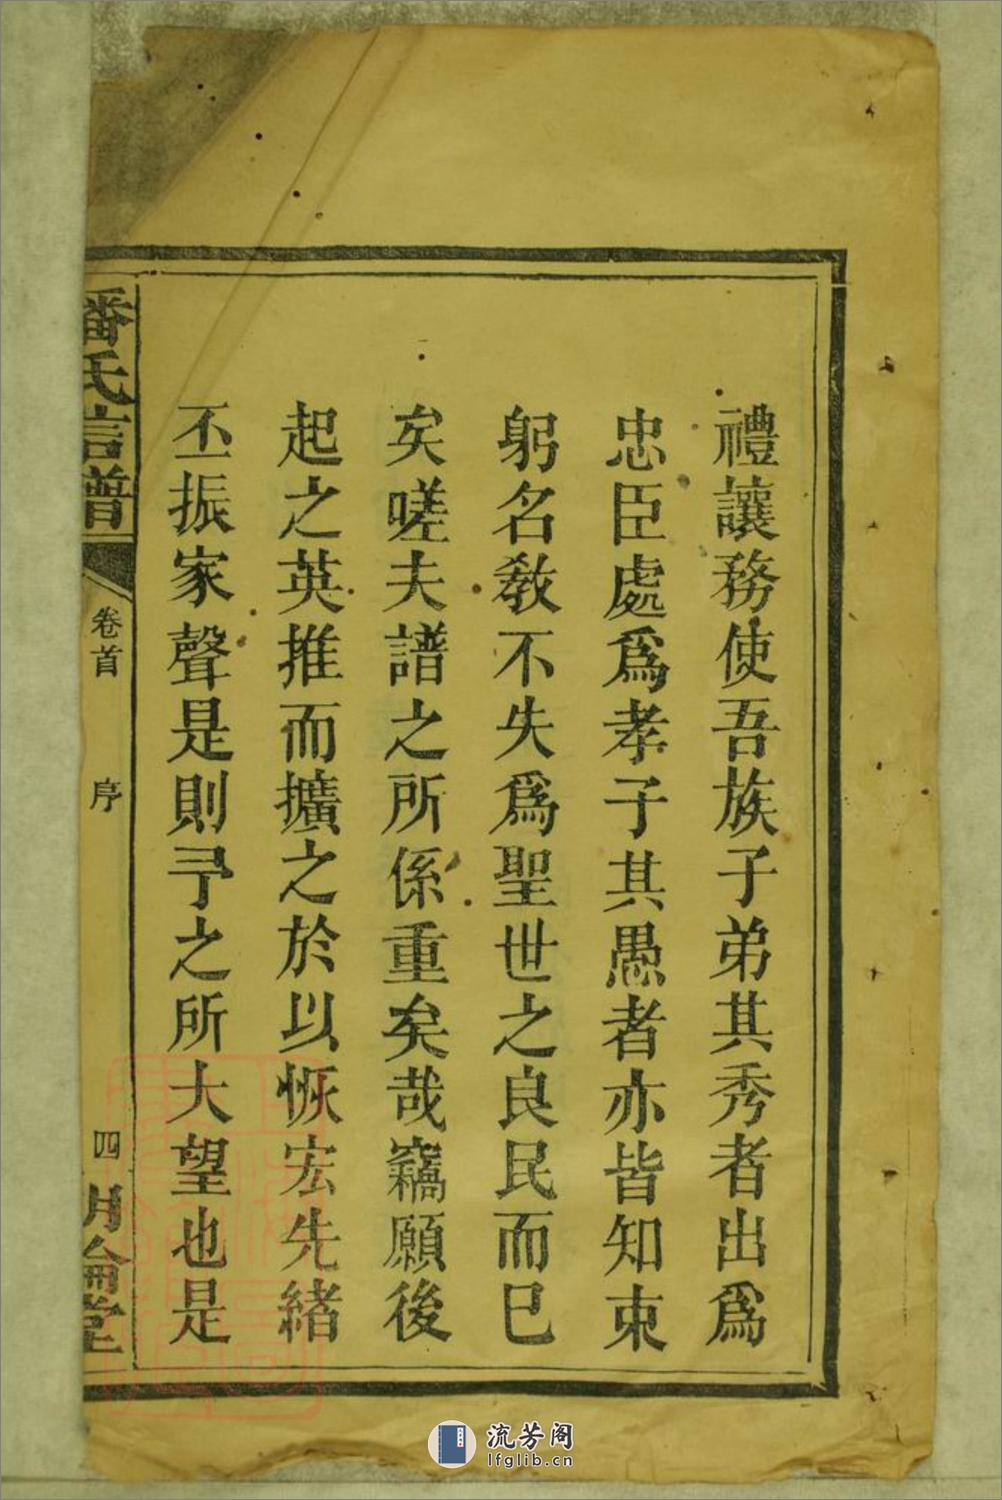 禮讓務使吾族子弟其秀者出爲
忠臣處爲孝子其愚者亦皆知束
躬名教不失爲聖世之良民而已
矣嗟夫譜之所係重矣哉竊願後
起之英推而擴之於以恢宏先緒
丕振家聲是則予之所大望也是
潘氏宗譜
卷首
序
四
明倫堂
流芳阁
lfglib.cn